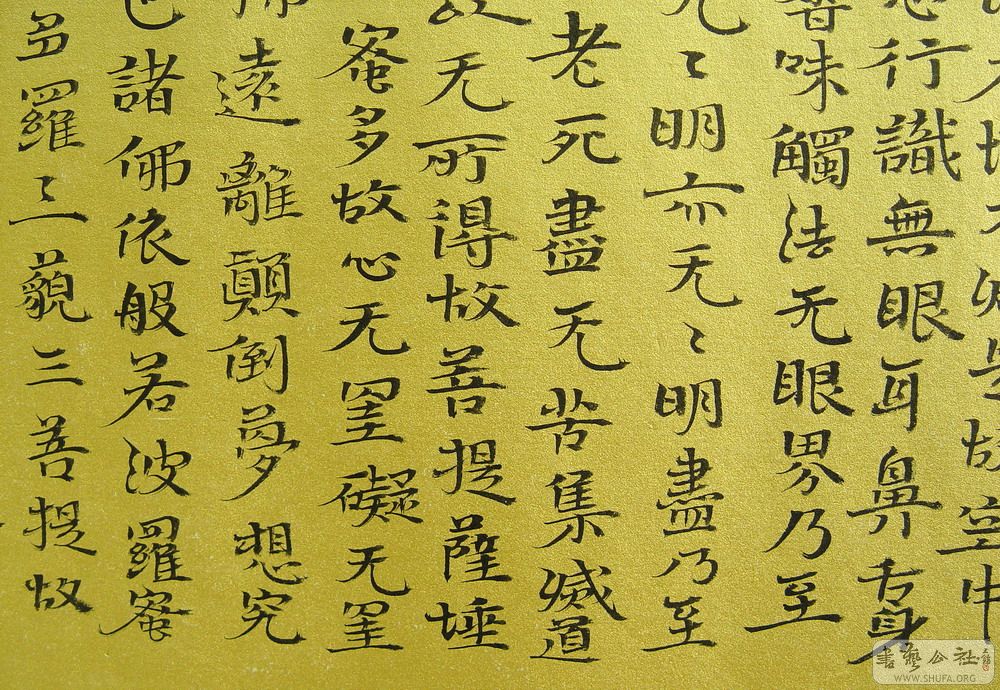 是故空中
行識無眼耳鼻舌身
香味觸法无眼界乃至
无〻明亦无〻明盡乃至
老死盡无苦集滅道
无所得故菩提薩埵
蜜多故心无罣礙无罣
遠離顛倒夢想究
諸佛依般若波羅蜜
多羅〻三藐三菩提故
書藝公社
WWW.SHUFA.ORG